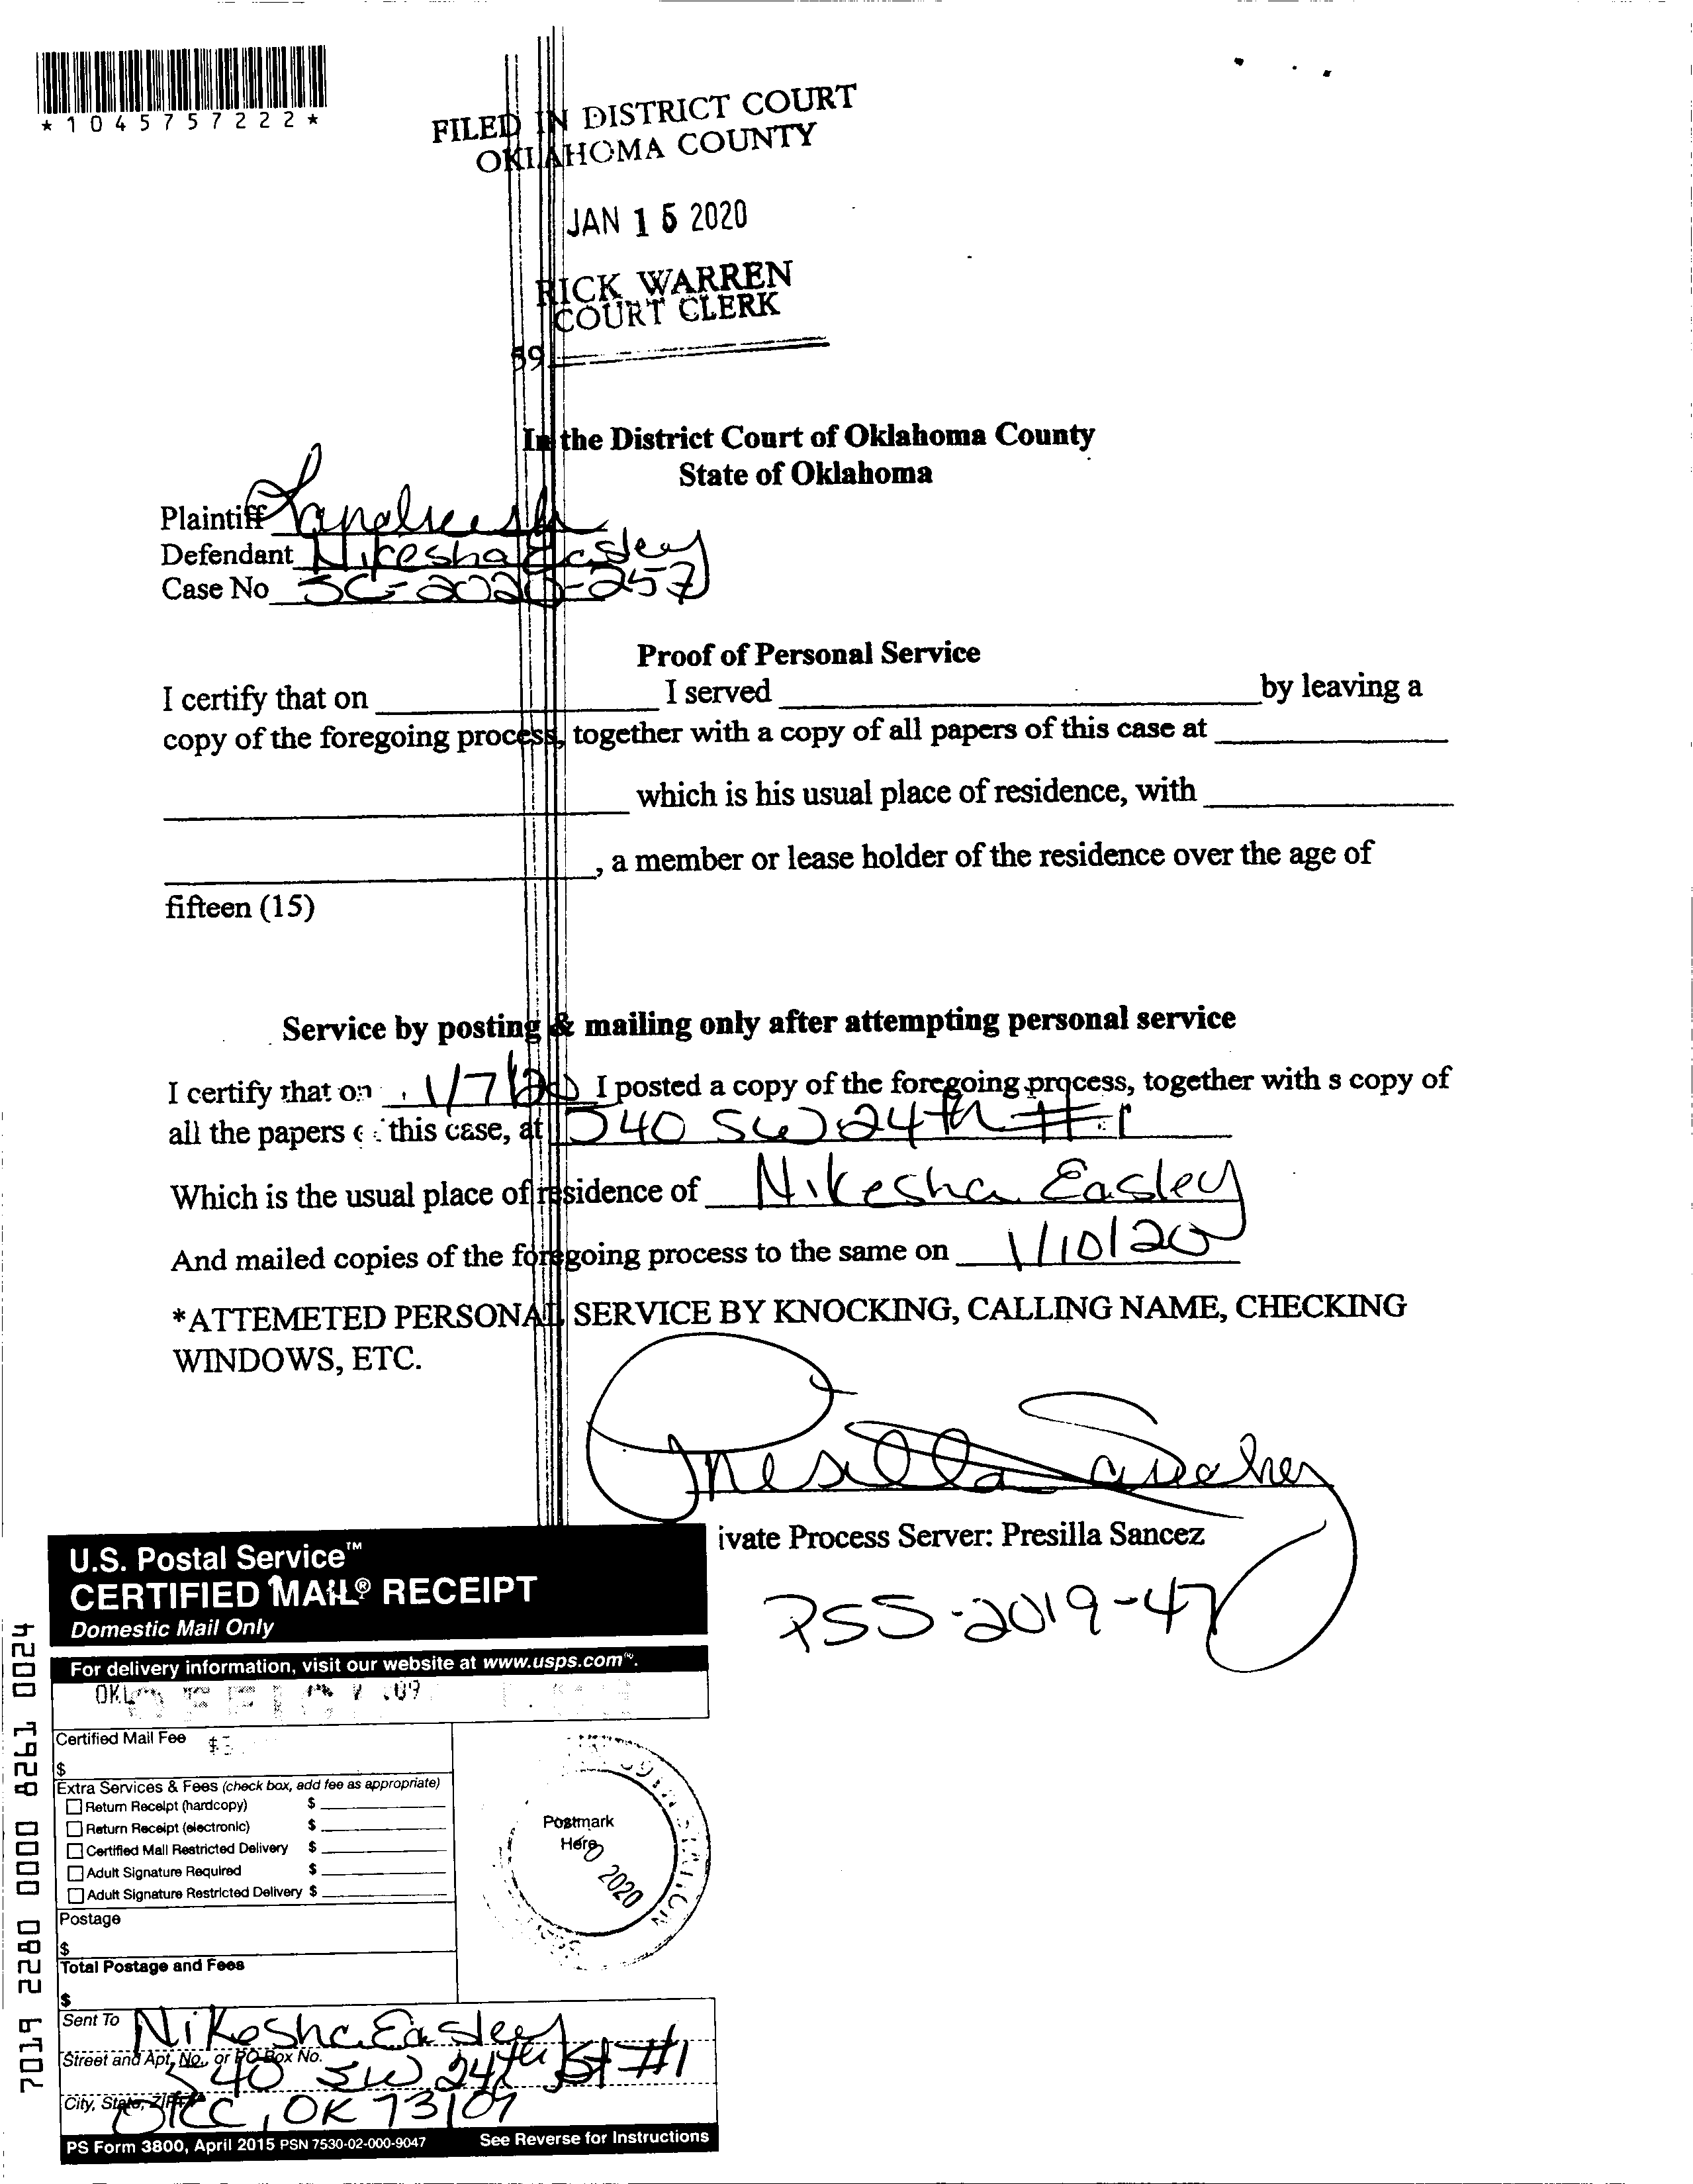 *1045757222*
FILED IN DISTRICT COURT
OKLAHOMA COUNTY
JAN 15 2020
RICK WARREN
COURT CLERK
59
In the District Court of Oklahoma County
State of Oklahoma
Plaintiff
Defendant Nikesha Easley
Case No SC-2020-257
Proof of Personal Service
I certify that on I served by leaving a
copy of the foregoing process, together with a copy of all papers of this case at
which is his usual place of residence, with
, a member or lease holder of the residence over the age of
fifteen (15)
Service by posting & mailing only after attempting personal service
I certify that on 1/7/20 I posted a copy of the foregoing process, together with s copy of
all the papers this case, at 540 SW 24th #1
Which is the usual place of residence of Nikesha Easley
And mailed copies of the foregoing process to the same on 1/10/20
*ATTEMETED PERSONAL SERVICE BY KNOCKING, CALLING NAME, CHECKING
WINDOWS, ETC.
Presilla Sanchez
ivate Process Server: Presilla Sancez
PSS-2019-47
U.S. Postal Service™
CERTIFIED MAIL® RECEIPT
Domestic Mail Only
For delivery information, visit our website at www.usps.com®.
Certified Mail Fee
$
Extra Services & Fees (check box, add fee as appropriate)
Return Receipt (hardcopy) $
Return Receipt (electronic) $
Certified Mail Restricted Delivery $
Adult Signature Required $
Adult Signature Restricted Delivery $
Postage
$
Total Postage and Fees
$
Postmark
Here
2020
STATION
Sent To Nikesha Easley
Street and Apt. No., or PO Box No. 540 SW 24th St #1
City, State, ZIP+4 OKC, OK 73109
PS Form 3800, April 2015 PSN 7530-02-000-9047 See Reverse for Instructions
7019 2280 0000 8261 0024